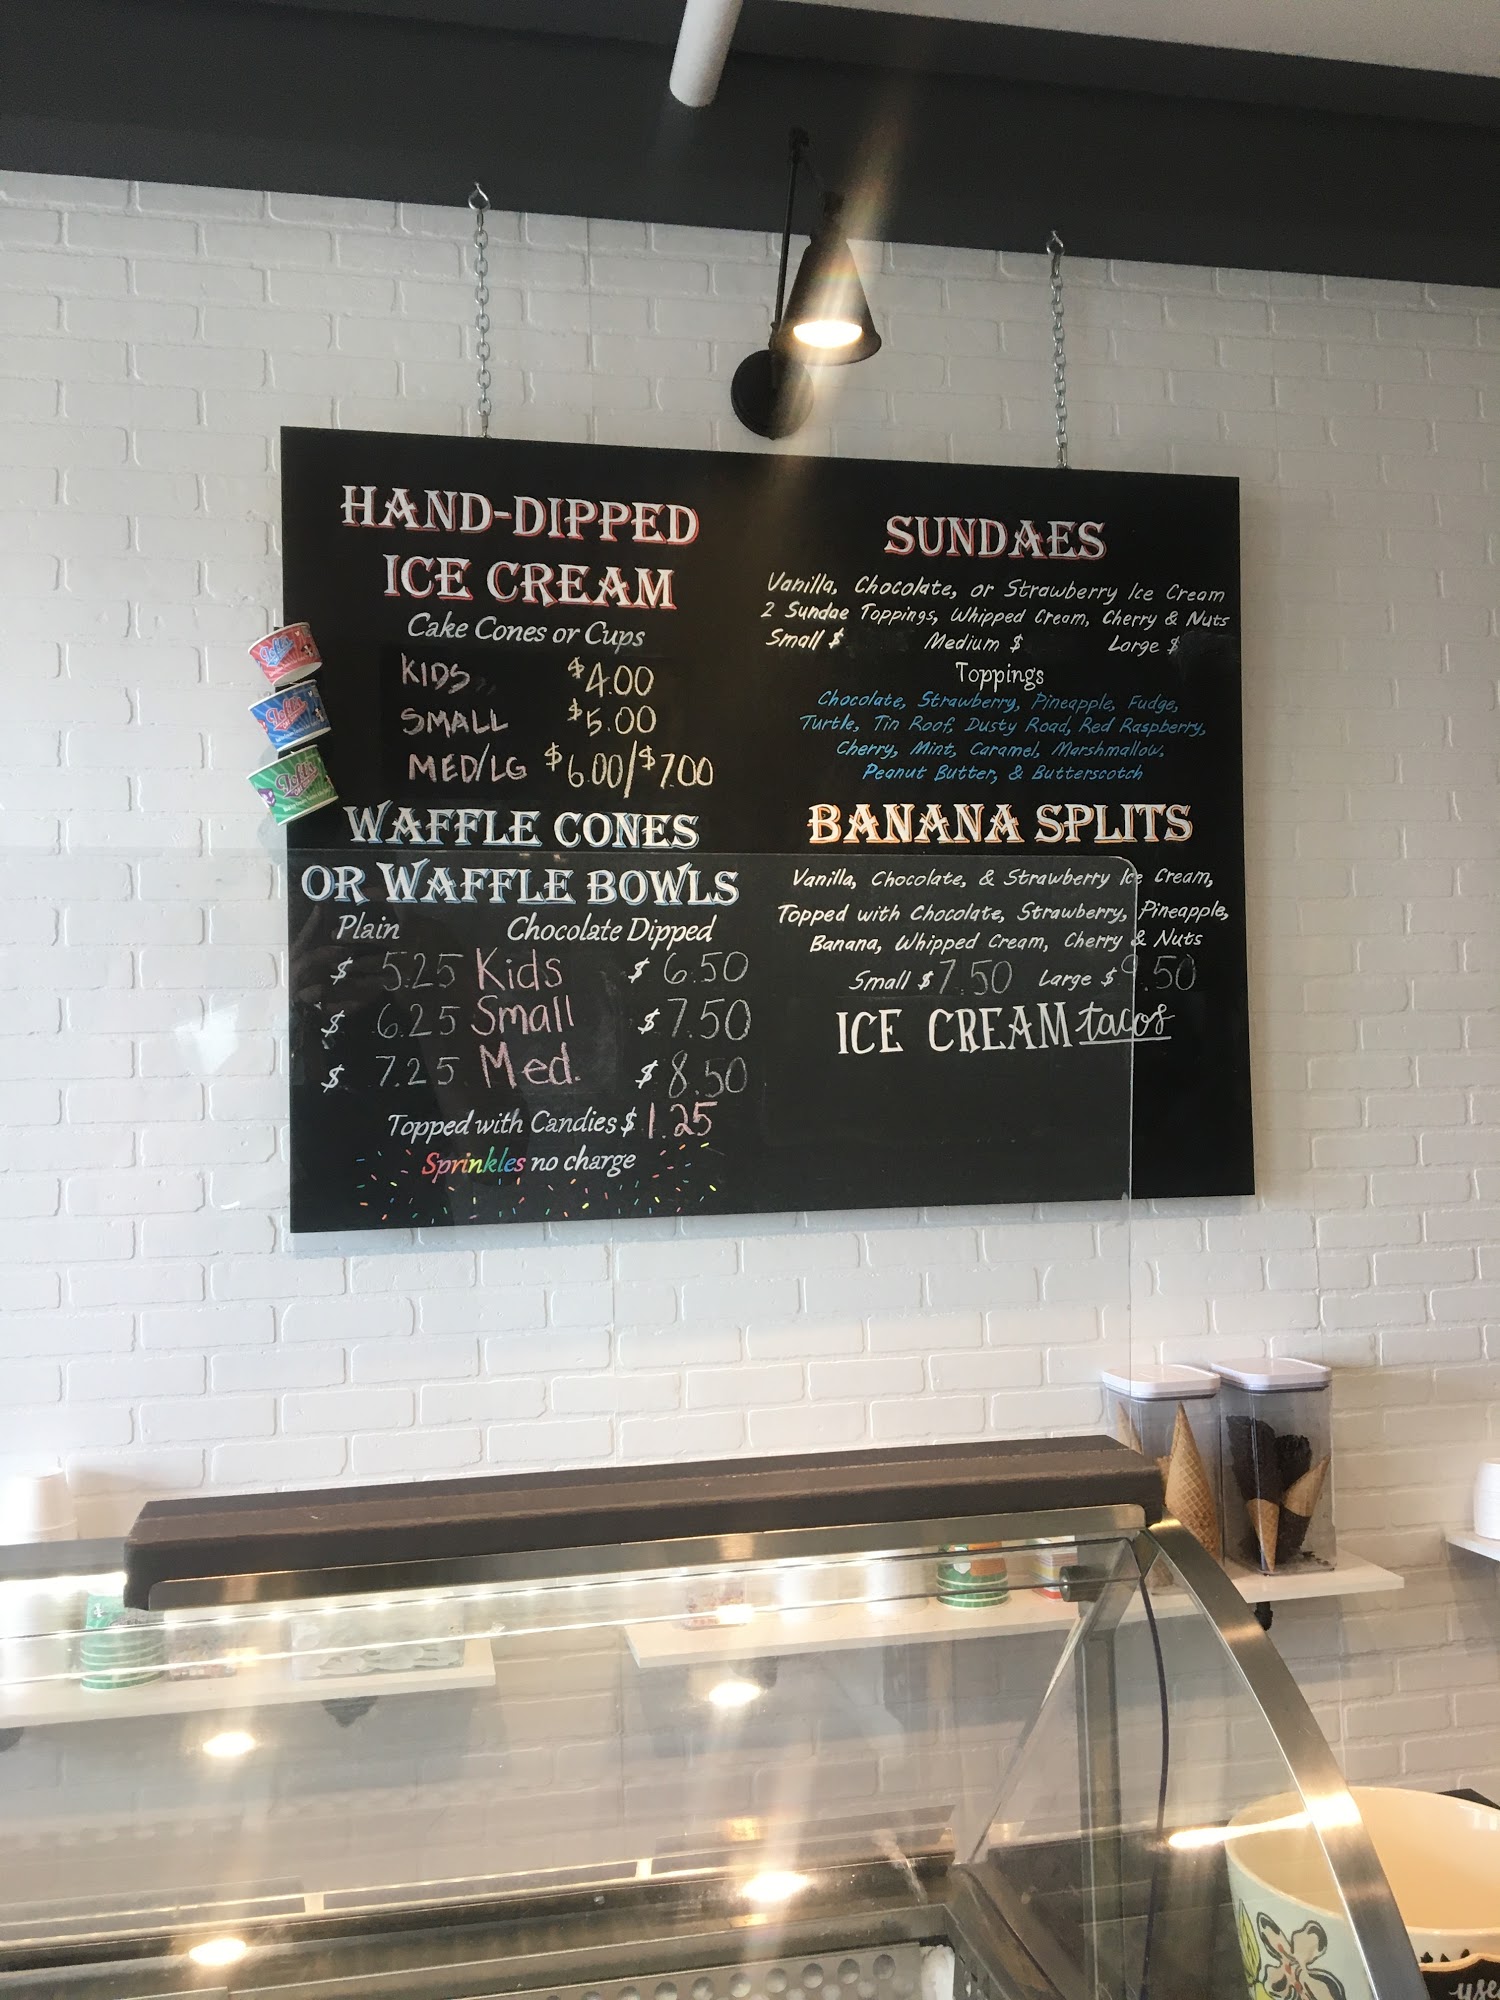 HAND-DIPPED
ICE CREAM
Cake Cones or Cups
KIDS $4.00
SMALL $5.00
MED/LG $6.00/$7.00
WAFFLE CONES
OR WAFFLE BOWLS
Plain Chocolate Dipped
$ 5.25 Kids $ 6.50
$ 6.25 Small $ 7.50
$ 7.25 Med. $ 8.50
Topped with Candies $ 1.25
Sprinkles no charge
SUNDAES
Vanilla, Chocolate, or Strawberry Ice Cream
2 Sundae Toppings, Whipped Cream, Cherry & Nuts
Small $ Medium $ Large $
Toppings
Chocolate, Strawberry, Pineapple, Fudge,
Turtle, Tin Roof, Dusty Road, Red Raspberry,
Cherry, Mint, Caramel, Marshmallow,
Peanut Butter, & Butterscotch
BANANA SPLITS
Vanilla, Chocolate, & Strawberry Ice Cream,
Topped with Chocolate, Strawberry, Pineapple,
Banana, Whipped Cream, Cherry & Nuts
Small $ 7.50 Large $ 9.50
ICE CREAM tacos
Loft's
Loft's
Loft's
use